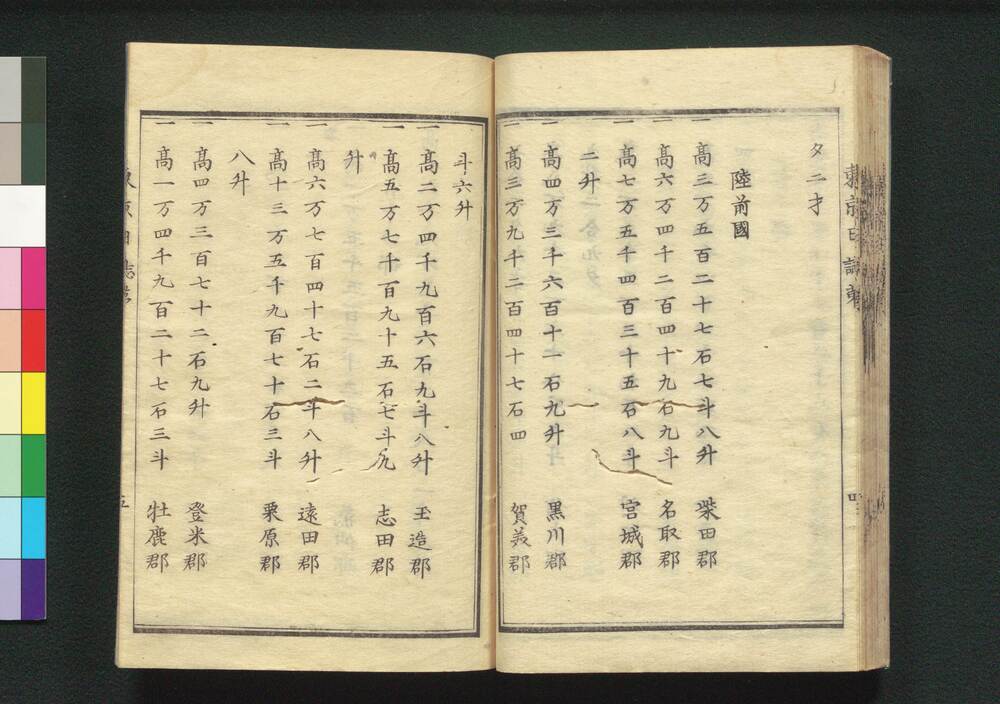 夕二才
陸前國
一高三万五百二十七石七斗八升　柴田郡
一高六万四千二百四十九石九斗　名取郡
一高七万五千四百三十五石八斗　宮城郡
二升
一高四万三千六百十一石九升　黒川郡
一高三万九千二百四十七石四　賀美郡
斗六升
一高二万四千九百六石九斗八升　玉造郡
一高五万七千百九十五石七斗九　志田郡
升
一高六万七百四十七石二斗八升　遠田郡
一高十三万五千九百七十石三斗　栗原郡
八升
一高四万三百七十二石九升　登米郡
一高一万四千九百二十七石三斗　牡鹿郡